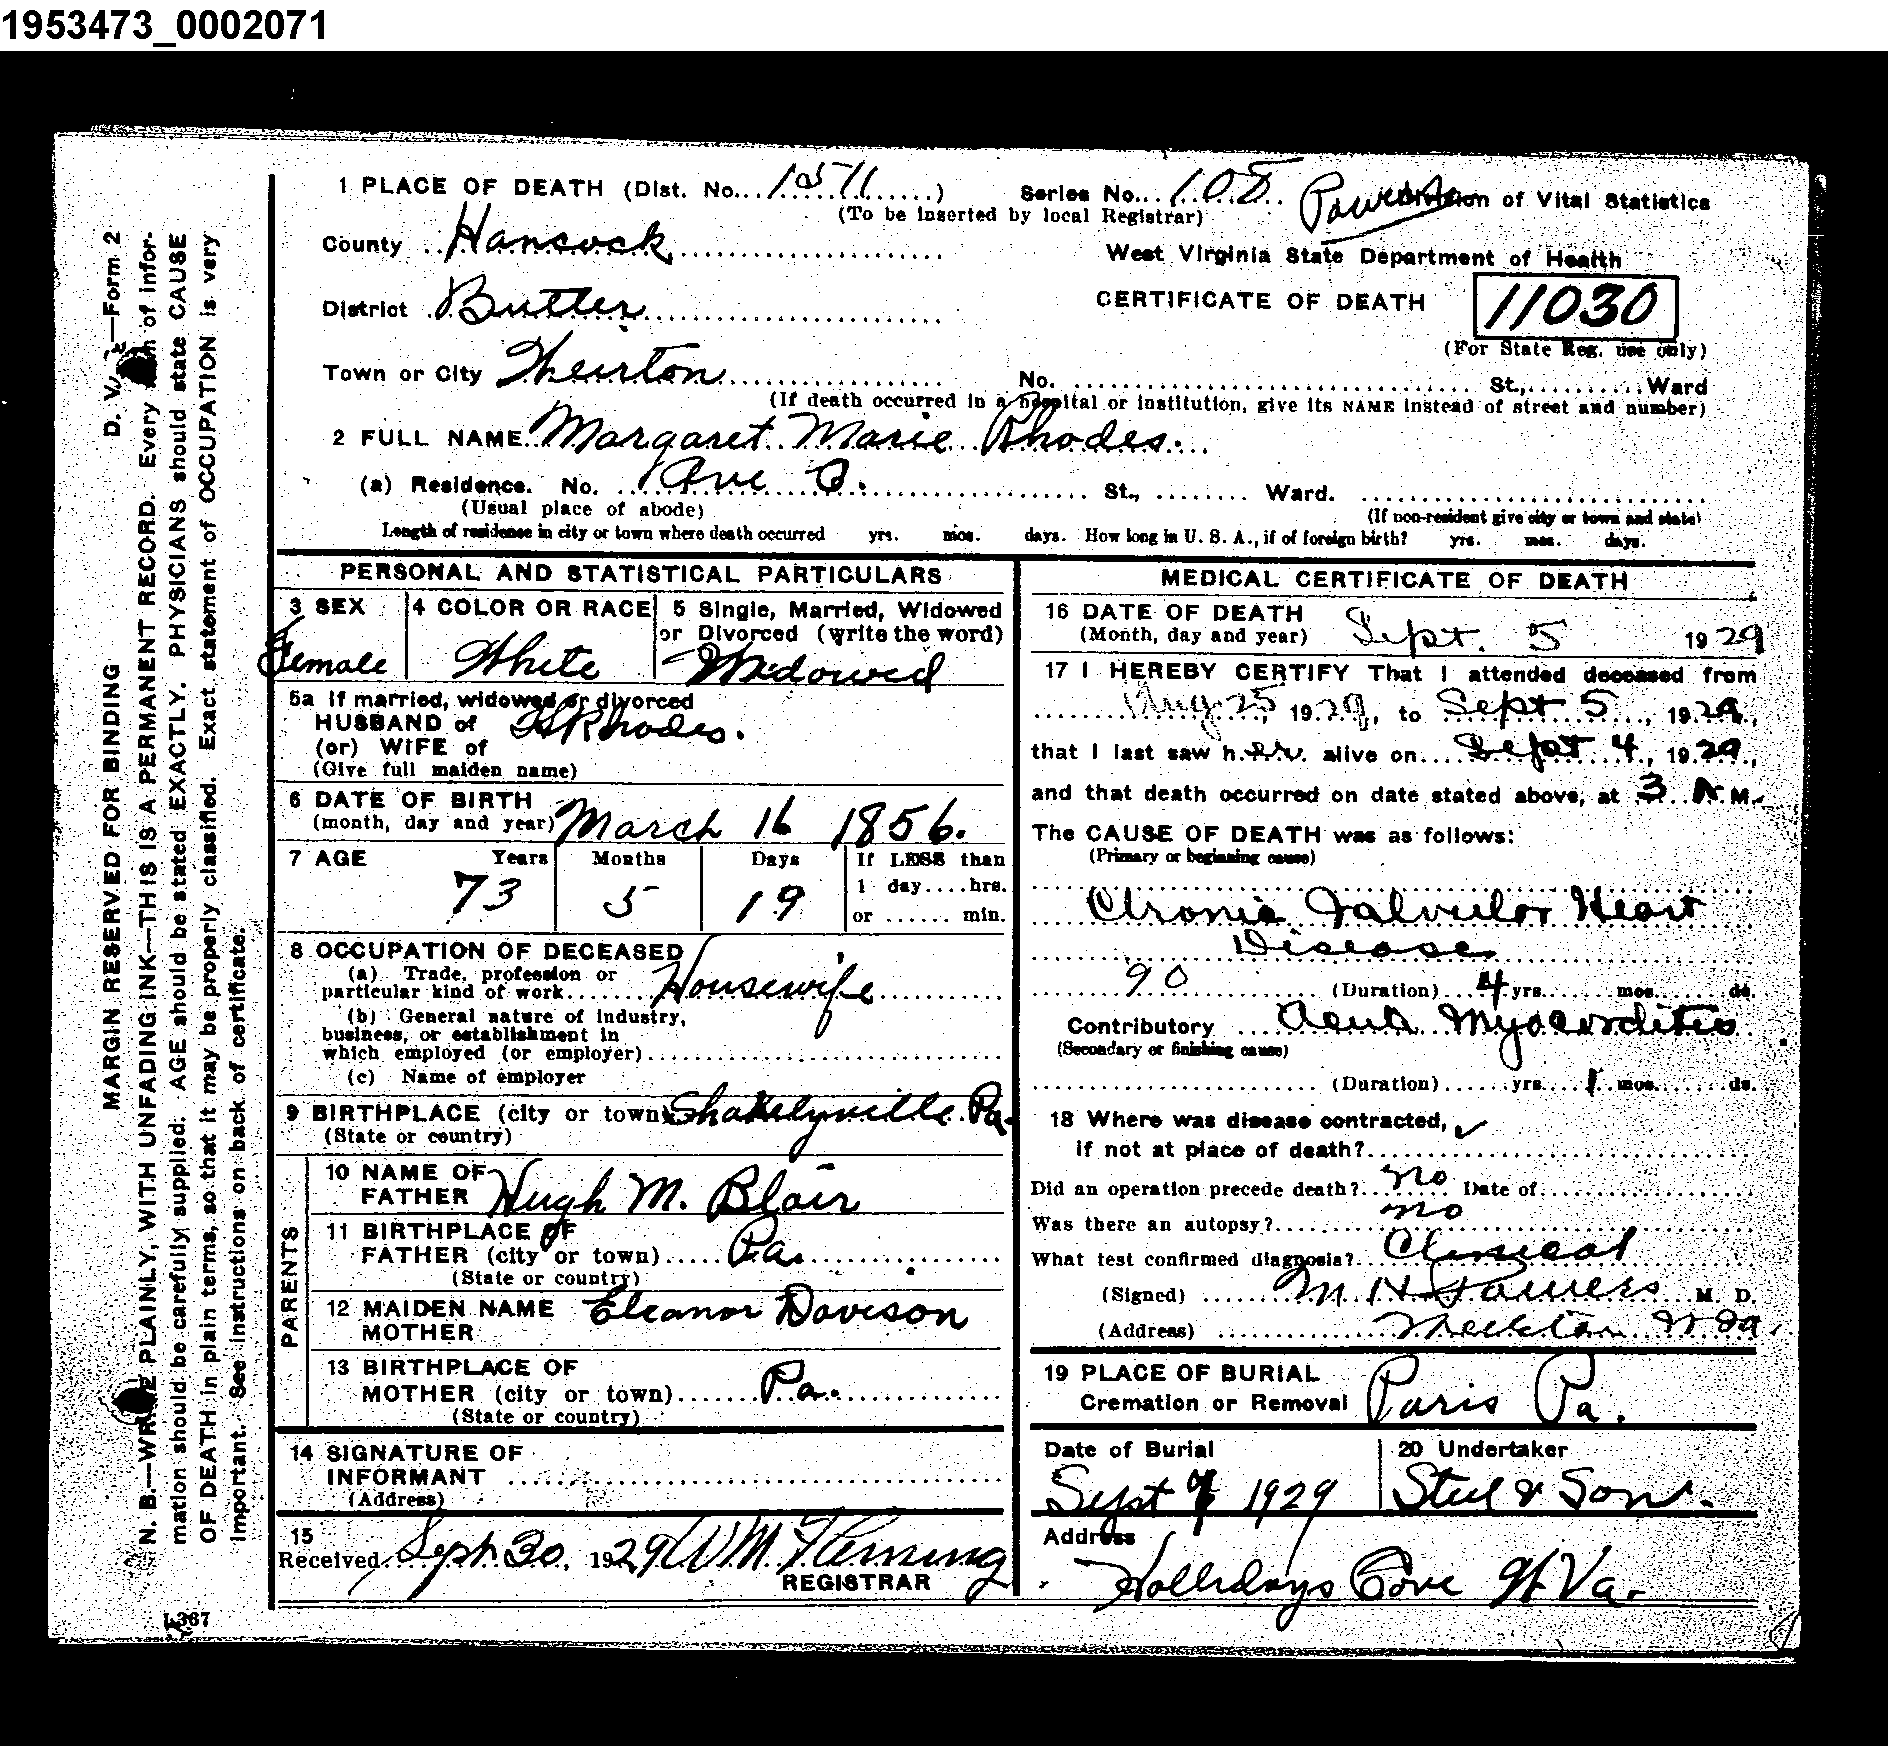 1953473_0002071
1 PLACE OF DEATH (Dist. No. 1511) Series No. 108 Division of Vital Statistics
(To be inserted by local Registrar)
County Hancock West Virginia State Department of Health
District Butler CERTIFICATE OF DEATH 11030
(For State Reg. use only)
Town or City Wheirton No. St., Ward
(If death occurred in a hospital or institution, give its NAME instead of street and number)
2 FULL NAME Margaret Marie Rhodes.
(a) Residence. No. Ave St., Ward.
(Usual place of abode) (If non-resident give city or town and state)
Length of residence in city or town where death occurred yrs. mos. days. How long in U. S. A., if of foreign birth? yrs. mos. days.
PERSONAL AND STATISTICAL PARTICULARS
3 SEX 4 COLOR OR RACE 5 Single, Married, Widowed
or Divorced (write the word)
Female White Widowed
5a If married, widowed or divorced
HUSBAND of Rhodes.
(or) WIFE of
(Give full maiden name)
6 DATE OF BIRTH
(month, day and year) March 16 1856.
7 AGE Years Months Days If LESS than
73 5 19 1 day....hrs.
or ...... min.
8 OCCUPATION OF DECEASED
(a) Trade, profession or
particular kind of work Housewife
(b) General nature of industry,
business, or establishment in
which employed (or employer)
(c) Name of employer
9 BIRTHPLACE (city or town) Shakelyville Pa.
(State or country)
PARENTS
10 NAME OF
FATHER Hugh M. Blair
11 BIRTHPLACE OF
FATHER (city or town) Pa.
(State or country)
12 MAIDEN NAME Eleanor Davison
MOTHER
13 BIRTHPLACE OF
MOTHER (city or town) Pa.
(State or country)
14 SIGNATURE OF
INFORMANT
(Address)
15
Received Sept. 30, 1929 W M. Fleming
REGISTRAR
MEDICAL CERTIFICATE OF DEATH
16 DATE OF DEATH
(Month, day and year) Sept. 5 1929
17 I HEREBY CERTIFY That I attended deceased from
Aug 25, 1929, to Sept 5, 1929,
that I last saw her alive on Sept 4, 1929,
and that death occurred on date stated above, at 3 A.M.
The CAUSE OF DEATH was as follows:
(Primary or beginning cause)
Chronic Valvular Heart
Disease
90 (Duration) 4 yrs. mos. ds.
Contributory Acute Myocarditis
(Secondary or finishing cause)
(Duration) yrs. 1 mos. ds.
18 Where was disease contracted,
if not at place of death?
Did an operation precede death? no Date of
Was there an autopsy? no
What test confirmed diagnosis? Clinical
(Signed) M H M. D.
(Address) W Va.
19 PLACE OF BURIAL
Cremation or Removal Paris Pa.
Date of Burial 20 Undertaker
Sept 1929 Steel & Son.
Address
Hollidays Cove W. Va.
D. V. —Form 2
MARGIN RESERVED FOR BINDING
N. B.—WRITE PLAINLY, WITH UNFADING INK—THIS IS A PERMANENT RECORD. Every item of infor-
mation should be carefully supplied. AGE should be stated EXACTLY. PHYSICIANS should state CAUSE
OF DEATH in plain terms, so that it may be properly classified. Exact statement of OCCUPATION is very
important. See instructions on back of certificate.